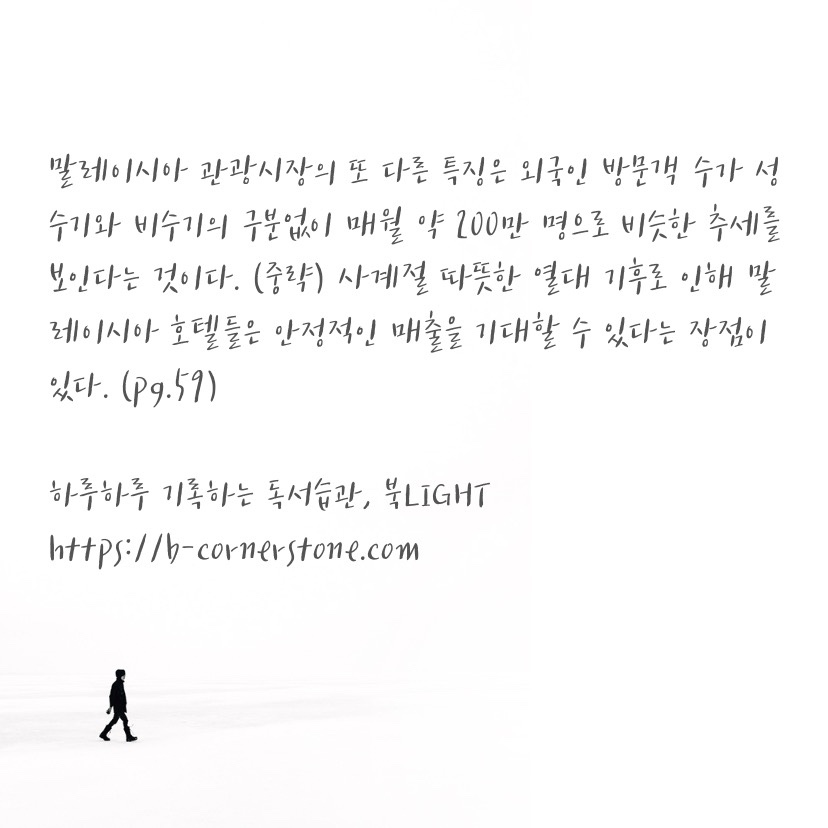 말레이시아 관광시장의 또 다른 특징은 외국인 방문객 수가 성
수기와 비수기의 구분없이 매월 약 200만 명으로 비슷한 추세를
보인다는 것이다. (중략) 사계절 따뜻한 열대 기후로 인해 말
레이시아 호텔들은 안정적인 매출을 기대할 수 있다는 장점이
있다. (pg.59)
하루하루 기록하는 독서습관, 북LIGHT
https://b-cornerstone.com